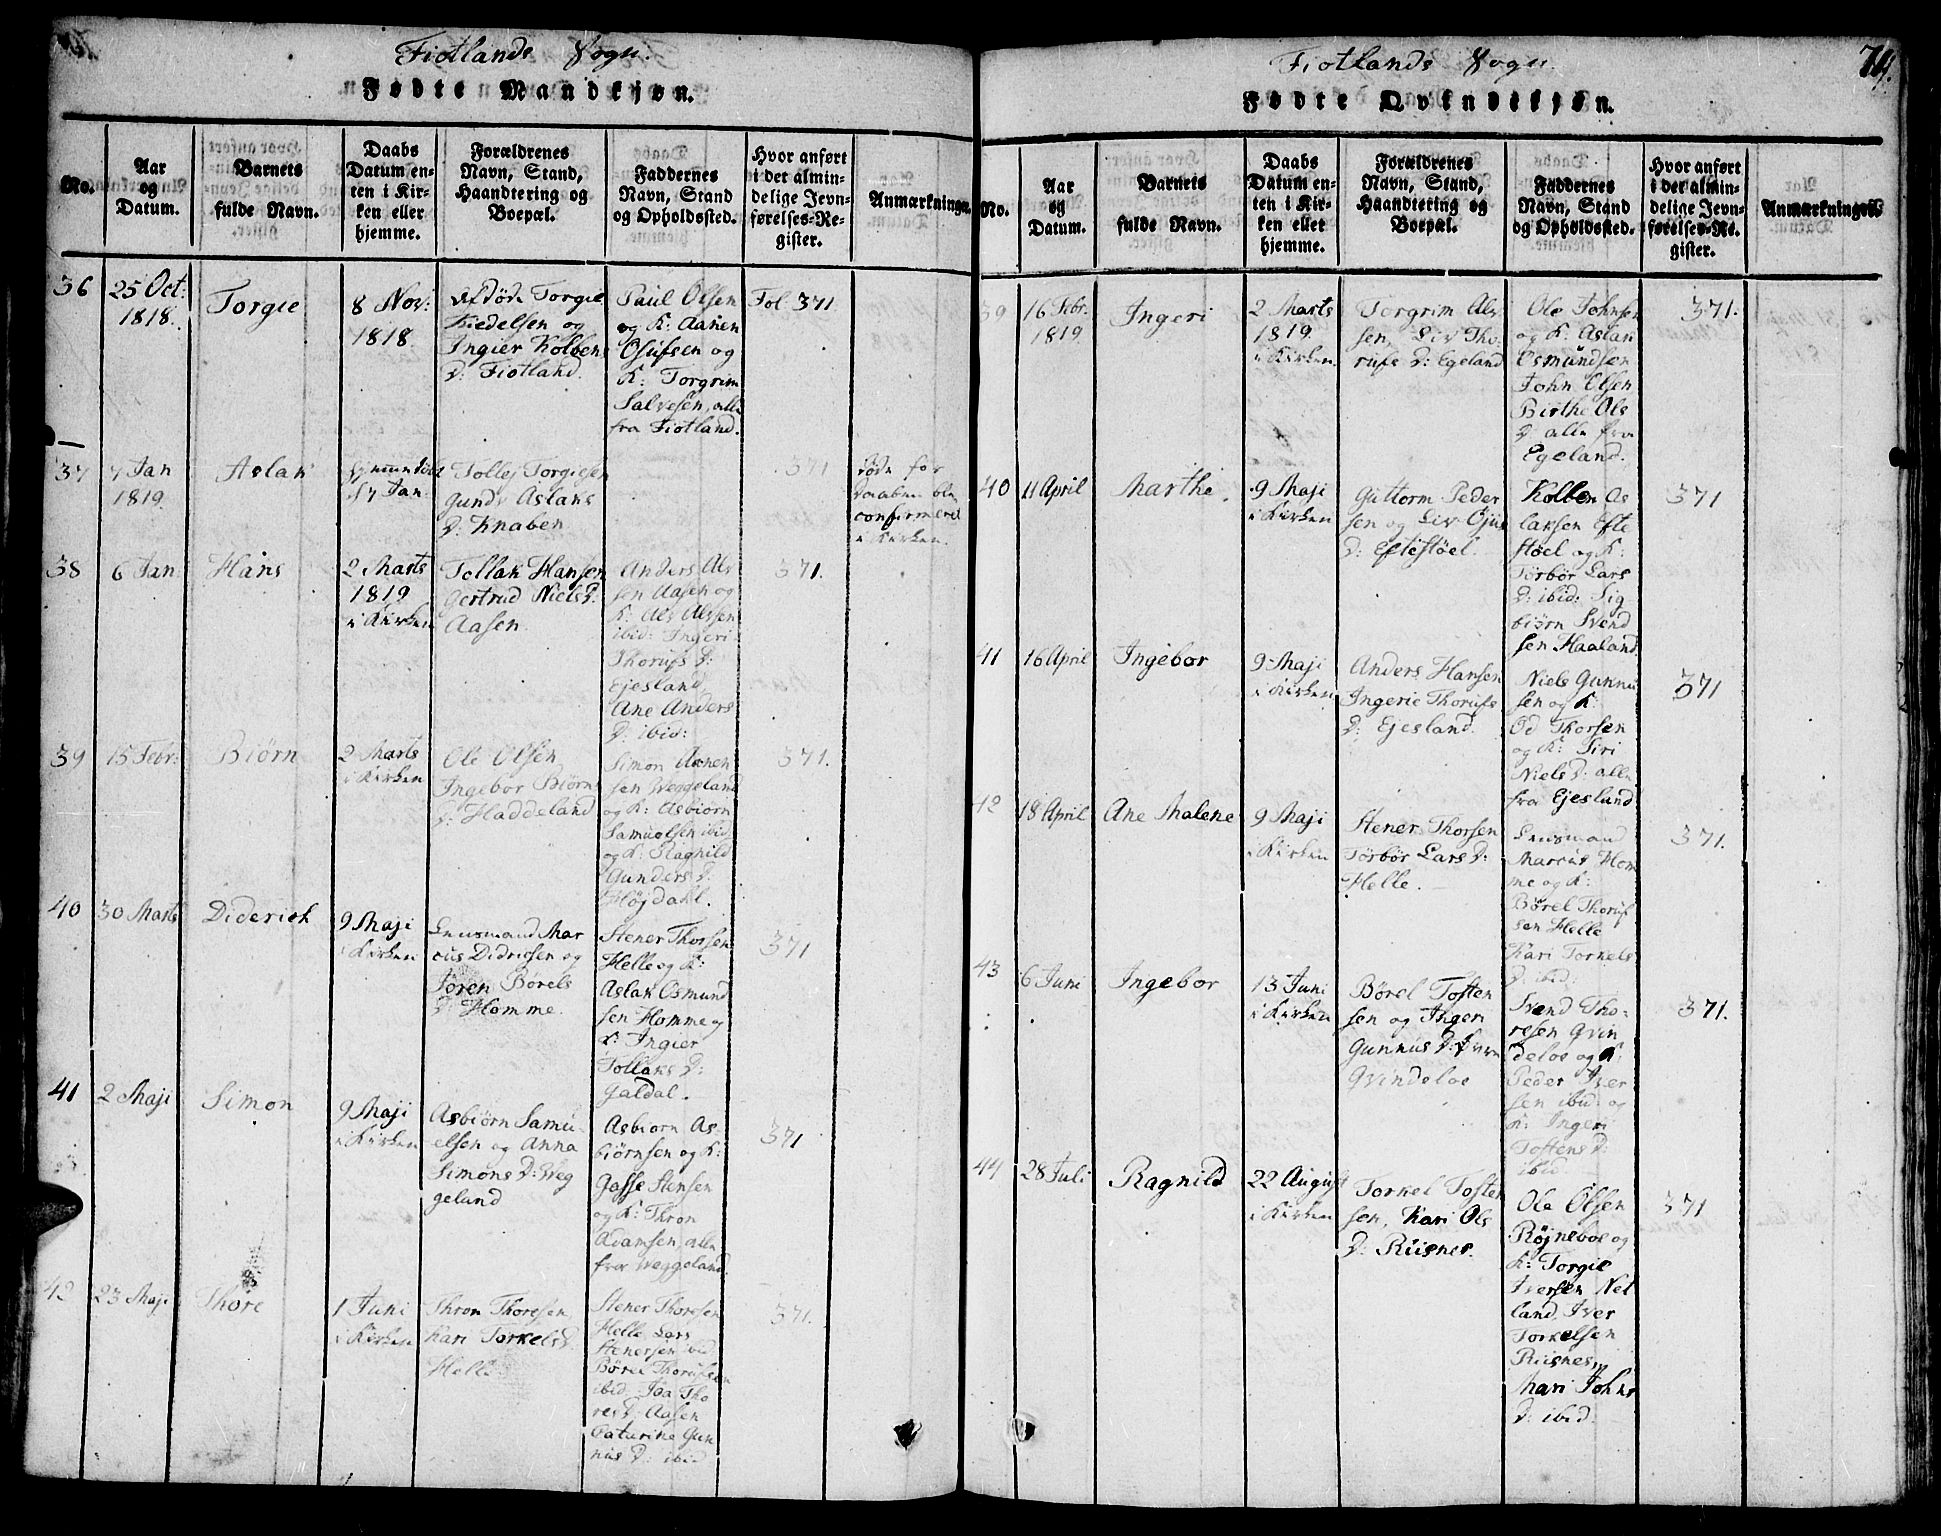 Fiotlands Sogn.
Fødte Mandkjøn.
No.
Aar
og
Datum.
Barnets
fulde Navn.
Daabs
Datum en-
ten i Kir-
ken eller
hjemme.
Forældrenes
Navn, Stand,
Haandtering og
Boepæl.
Faddernes
Navn, Stand
og Opholdssted.
Hvor anført
i det almin-
delige Jevn-
førelses-Re-
gister.
Anmærkninge
36
25 Oct:
1818.
Torgie
8 Nov:
1818.
Afdøde Torgie
Kiedelsen og
Ingier Kolbens
D: Fiotland.
Paul Olsen
og K: Aanen
Osufsen og
K: Torgrim
Salvesen, alle
fra Fiotland.
Fol. 371
37
7 Jan
1819.
Aslak
17 Jan.
Tollej Torgiesen
Gunds Aslaks
D: Knaben
371
døde før
Daaben blev
confirmeret
i Kirken.
38
6 Jan:
Hans
2 Marts
1819
i Kirken
Tollak Hansen
Gertrud Niels D:
Aasen
Anders Alv
sen Aasen og
K: Alv Alvsen
ibid: Ingeri
Thorufs D:
Ejesland
Ane Anders
D: ibid:
371.
39
15 Febr:
Biørn
2 Marts
i Kirken
Ole Olsen
Ingebor Biørns
D: Haddeland
Simon Aanen
sen Veggeland
og K: Asbiørn
Samuelsen ibid
og K: Ragnild
Aunders D:
Højdahl.
371.
40
30 Marts
Diderich
9 Maji
i Kirken
Lensmand Mar
cus Didricsen og
Joren Børels
D: Homme.
Stener Thorsen
Helle og K:
Aslak Osmund
sen Homme og
K: Ingier
Tollaks D:
Galdal.
371
41
2 Maji
Simon
9 Maji
i Kirken
Asbiørn Samu-
elsen og Anna
Simons D: Veg
geland
Asbiorn As-
biørnsen og K:
Gasse Stensen
og K: Thron
Adamsen, alle
fra Veggeland.
371
42
23 Maji
Thore
1 Juni
i Kirken
Thron Thoresen
Kari Torkels D
Helle
Stener Thoresen
Helle, Lars
Stenersen ibid
Børel Thorufsen
ibid, Joa Tho
res D: Aasen
Caturine Gun
nus D: ibid
371.
Fiotlands Sogn.
74.
Fødte Qvindekjøn.
No.
Aar
og
Datum.
Barnets
fulde Navn.
Daabs
Datum en-
ten i Kir-
ken eller
hjemme.
Forældrenes
Navn, Stand,
Haandtering og
Boepæl.
Faddernes
Navn, Stand
og Opholdssted.
Hvor anført
i det almin-
delige Jevn-
førelses-Re-
gister.
Anmærkninger
39
16 Febr.
1819.
Ingeri
2 Marts
1819.
i Kirken.
Torgrim Alv
sen, Liv Tho-
rufs D: Egeland
Ole Johnsen
og K: Aslak
Osmundsen
John Olsen
Birthe Ols
D alle fra
Egeland.
371.
40
11 April
Marthe.
9 Maji
i Kirken
Guttorm Peder
sen og Liv Ojus
D: Eftestøel.
Kolben As
laksen Efte
støel og K:
Torbør Lars
D: ibid: Sig
biørn Svend
sen Haaland.
371
41
16 April
Ingebor
9 Maji
i Kirken
Anders Hansen
Ingerie Thorufs
D: Ejesland.
Niels Gunnu
sen og K:
Od Thorsen
og K: Siri
Niels D: alle
fra Ejesland
371
42
18 April
Ane Malene
9 Maji
i Kirken
Stener Thorsen
Torbør Lars D:
Helle.
Lensmand
Marcus Hom
me og K:
Børel Thoruf
sen Helle
Kari Torkels
D: ibid:
371.
43
6 Juni
Ingebor
13 Juni
i Kirken
Børel Tosten
sen og Ingeri
Gunnus D:
Gvindeloe
Svend Tho-
resen Gvin
deloe og K:
Peder Iver
sen ibid: og
K: Ingeri
Tostens D:
ibid:
371.
44
28 Juli
Ragnild
22 August
i Kirken
Torkel Tosten
sen, Kari Ols
D: Risnes.
Ole Olsen
Røjneboe og
K: Torgie
Iversen Net
land, Iver
Torkelsen
Risnes,
Mari Johns
D: ibid:
371